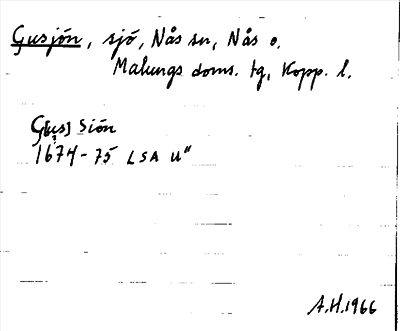 Gusjön, sjö, Nås sn, Nås o.
Malungs doms. tg, Kopp. l.
G[us] Siön
1674-75 LSA U"
A.H. 1966